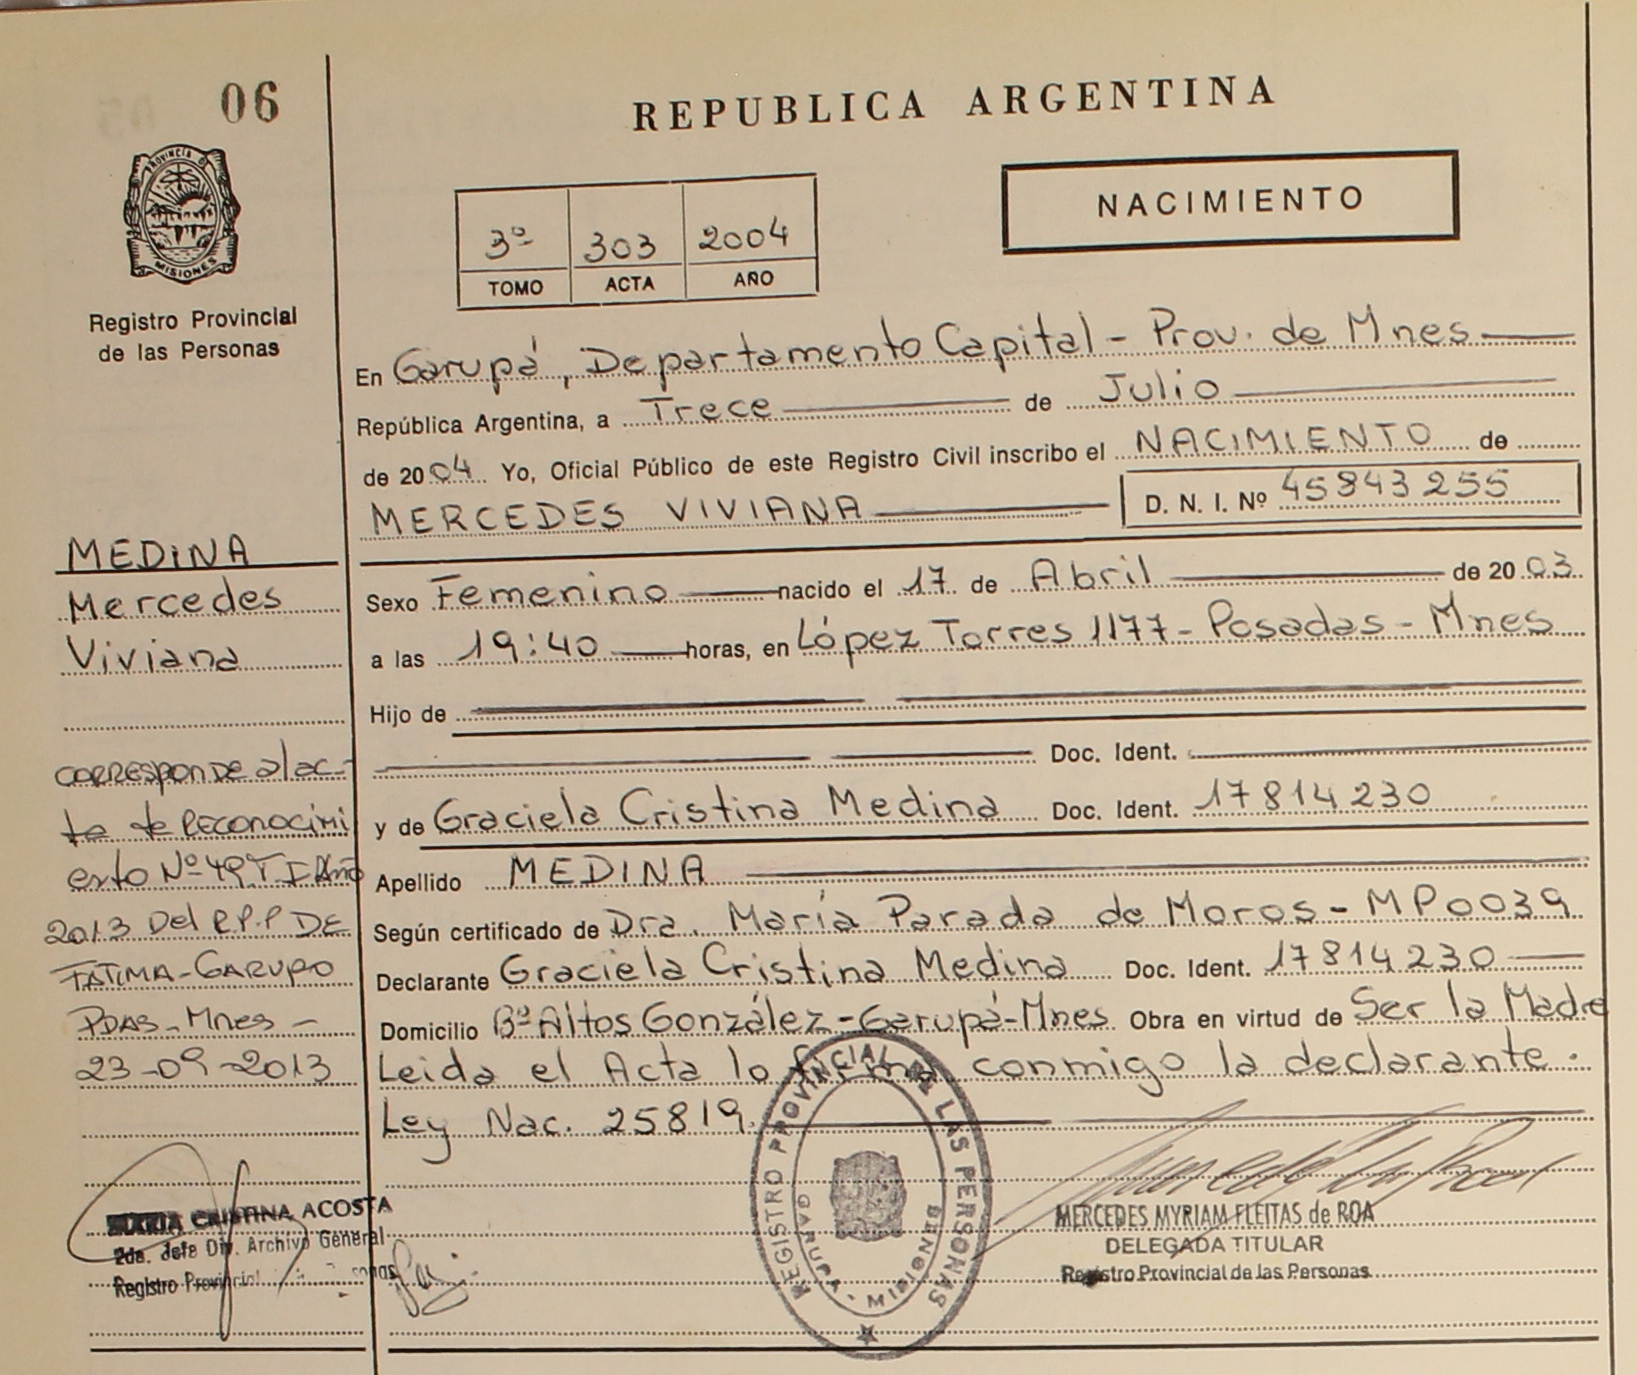 06
REPUBLICA ARGENTINA
PROVINCIA D
MISIONES
Registro Provincial
de las Personas
NACIMIENTO
3º 303 2004
TOMO ACTA AÑO
En Garupá, Departamento Capital - Prov. de Mnes
República Argentina, a Trece de Julio
de 2004 Yo, Oficial Público de este Registro Civil inscribo el NACIMIENTO de
MERCEDES VIVIANA D. N. I. Nº 45843255
Sexo Femenino nacido el 17 de Abril de 2003
a las 19:40 horas, en López Torres 1177 - Posadas - Mnes
Hijo de
Doc. Ident.
y de Graciela Cristina Medina Doc. Ident. 17814230
Apellido MEDINA
Según certificado de Dra. María Parada de Moros - MP0039
Declarante Graciela Cristina Medina Doc. Ident. 17814230
Domicilio Bº Altos González - Garupá - Mnes Obra en virtud de Ser la Madre
Leida el Acta la firma conmigo la declarante.
Ley Nac. 25819.
MEDINA
Mercedes
Viviana
CORRESPONDE al ac-
ta de RECONOCIMI
ento Nº 49 T I Año
2013 Del R.P.P DE
FATIMA - GARUPO
PDAS - Mnes -
23-09-2013
MARIA CRISTINA ACOSTA
2da. Jefe Div. Archivo General
Registro Provincial
REGISTRO PROVINCIAL DE LAS PERSONAS
GARUPA - MISIONES
MERCEDES MYRIAM FLEITAS de ROA
DELEGADA TITULAR
Registro Provincial de las Personas